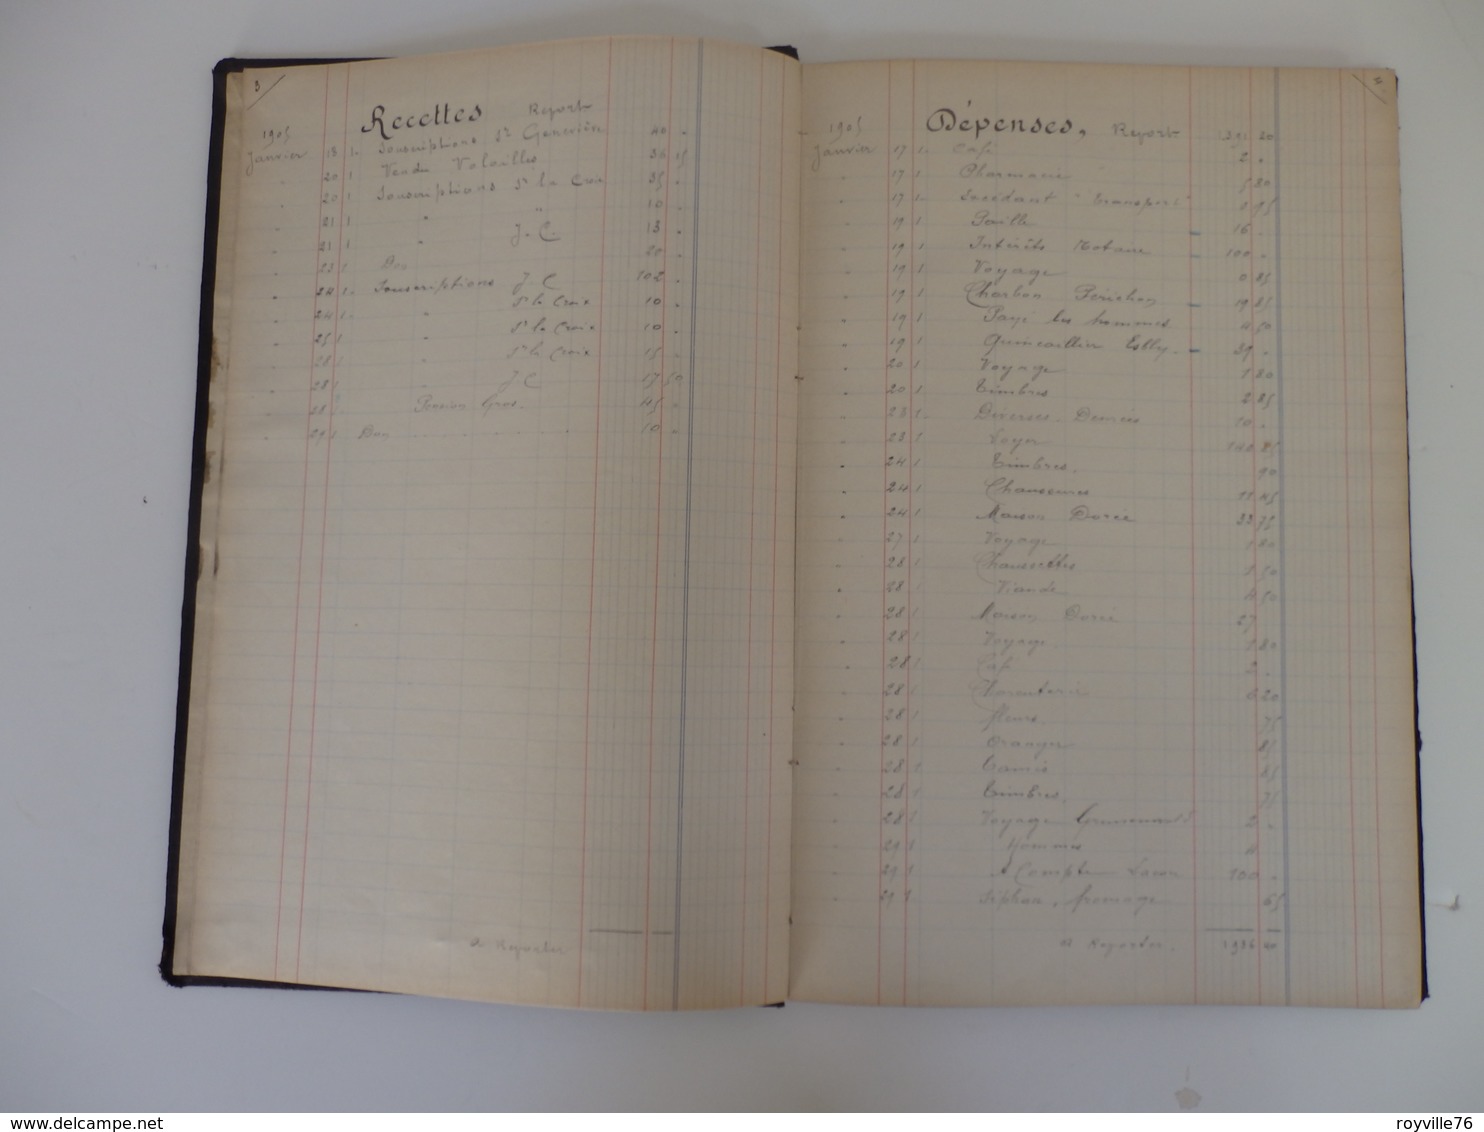 3
Recettes Report
1905
Janvier 18 1 Souscriptions Ste Geneviève 40 "
" 20 1 Vendu Volailles 36 15
" 20 1 Souscriptions Ste la Croix 35 "
" 21 1 " " 10 "
" 21 1 " J. C. 13 "
" 23 1 Don 20 "
" 24 1 Souscriptions J C 102 "
" 24 1 " Ste la Croix 10 "
" 25 1 " Ste la Croix 10 "
" 28 1 " Ste la Croix 15 "
" 28 1 " J C 17 50
" 28 1 Pension Gros. 45 "
" 29 1 Don 10 "
a Reporter
4
Dépenses, Report 1391 20
1905
Janvier 17 1 Café 2 "
" 17 1 Pharmacie 5 80
" 17 1 "Transport" 1 95
" 19 1 Paille 16 "
" 19 1 Intérêts Notaire 100 "
" 19 1 Voyage 0 85
" 19 1 Charbon Périchon 19 85
" 19 1 Payé les hommes 4 50
" 19 1 Quincaillier 39 "
" 20 1 Voyage 1 80
" 20 1 Timbres 2 85
" 23 1 Diverses Denrées 10 "
" 23 1 Loyer 140 85
" 24 1 Timbres. 90
" 24 1 Chaussures 11 45
" 24 1 Maison Dorée 33 75
" 27 1 Voyage 1 80
" 28 1 Chaussettes 1 50
" 28 1 Viande 4 50
" 28 1 Maison Dorée 27
" 28 1 Voyage. 1 80
" 28 1 Café 2 "
" 28 1 20
" 28 1 fleurs 75
" 28 1 Oranges 85
" 28 1 Tamis 65
" 28 1 Timbres. 75
" 28 1 Voyage 2 "
" 29 1 Hommes 4
" 29 1 A Compte 100 "
" 29 1 Siphon, fromage 65
a Reporter. 1996 40
delcampe.net
royville76